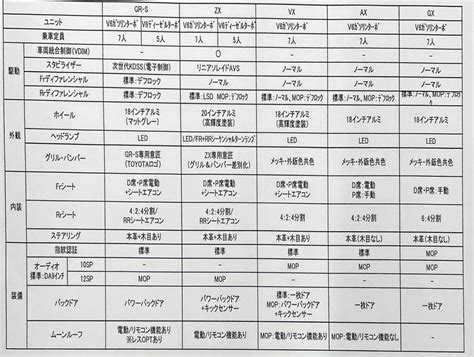 GR-S ZX VX AX GX
ユニット V6ガソリンターボ V6ディーゼルターボ V6ガソリンターボ V6ディーゼルターボ V6ガソリンターボ V6ガソリンターボ V6ガソリンターボ
乗車定員 7人 5人 7人 5人 7人 7人 7人
駆動 車両統合制御(VDIM) - ○ - - -
スタビライザー 次世代KDSS(電子制御) リニアソレノイドAVS ノーマル ノーマル ノーマル
Frディファレンシャル 標準:デフロック ノーマル ノーマル ノーマル ノーマル
Rrディファレンシャル 標準:デフロック 標準:LSD MOP:デフロック 標準:ノーマル、MOP:デフロック 標準:ノーマル、MOP:デフロック 標準:ノーマル、MOP:デフロック
外観 ホイール 18インチアルミ (マットグレー) 20インチアルミ (高輝度塗装) 18インチアルミ (高輝度塗装) 18インチアルミ 18インチアルミ
ヘッドランプ LED LED/FR+RRシーケンシャルターンランプ LED LED LED
グリル・バンパー GR-S専用意匠 (TOYOTAロゴ) ZX専用意匠 (グリル&バンパー差別化) メッキ・外販色共色 メッキ・外販色共色 メッキ・外販色共色
内装 Frシート D席・P席電動 +シートエアコン D席・P席電動 +シートエアコン D席・P席電動 +シートエアコン D席:電動 P席:手動 D席・P席:手動
Rrシート 4:2:4分割/ RRシートエアコン 4:2:4分割/ RRシートエアコン 4:2:4分割/ RRシートエアコン 4:2:4分割 6:4分割
ステアリング 本革+木目あり 本革+木目あり 本革+木目あり 本革(木目なし) 本革(木目なし)
装備 指紋認証 標準 標準 標準 標準 標準
オーディオ 標準:DA9インチ 10SP - - - MOP -
12SP MOP MOP MOP - -
バックドア パワーバックドア パワーバックドア +キックセンサー 標準:一枚ドア MOP:パワーバックドア +キックセンサー 一枚ドア 一枚ドア
ムーンルーフ MOP:電動/リモコン機能あり ※レスOPTあり MOP:電動/リモコン機能あり MOP:電動/リモコン機能あり MOP:電動/リモコン機能あり -